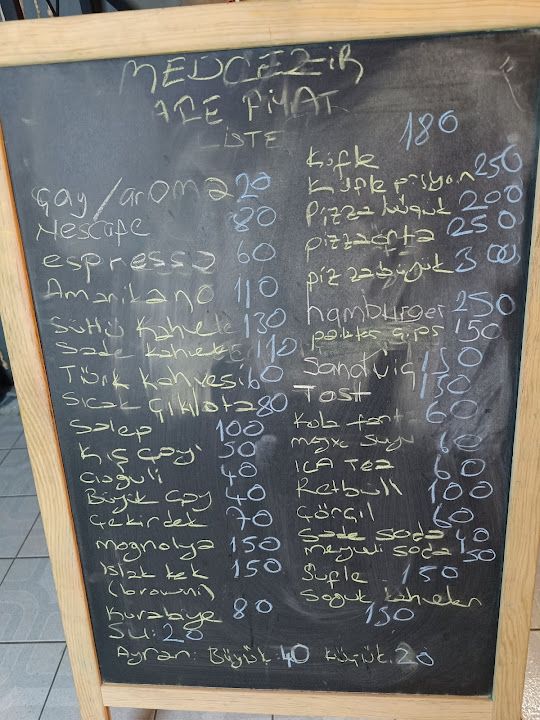 MEDCEZİR
AİLE FİYAT
LİSTE
Çay/aroma 20
Nescafe 80
espresso 60
Amarikano 110
Sütlü Kahvele 130
Sade kahvele 110
Türk kahvesi 60
Sıcak Çiklota 80
Salep 100
Kış çayı 50
40
Büyük Çay 40
Çekirdek 70
Mognolya 150
Islak kek 150
(browni)
Kurabiye 80
Su: 20
Ayran: Büyük: 40 küçük: 20
180
Küfle
250
Pizza küçük 200
pizza orta 250
pizza büyük 300
hamburger 250
patates cips 150
Sandviç 150
Tost 150
Kola fant 60
Meyve Suyu 60
ICA Tea 60
Retbull 100
60
Sade soda 40
meyveli soda 50
Sufle 150
Soğuk kahveler
150